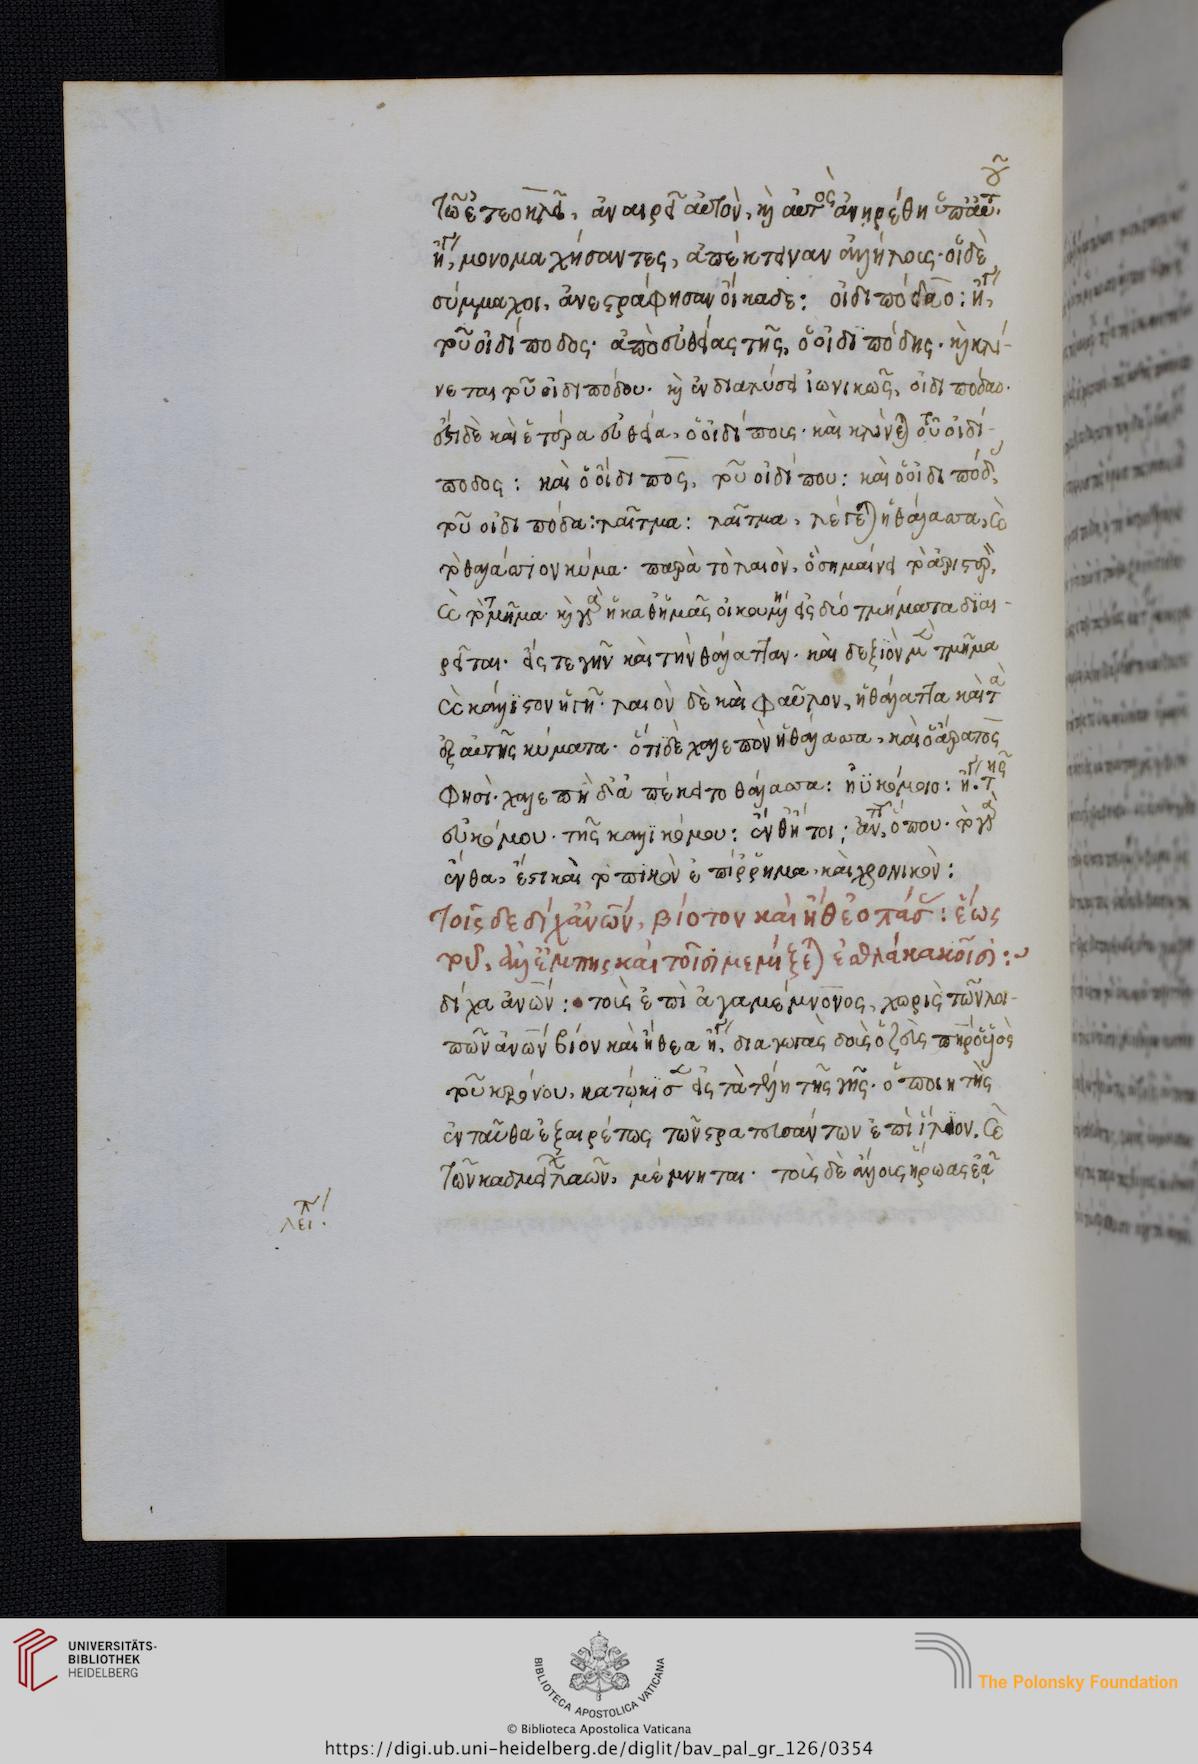 τῶ ἐτεοκλεῖ, ἀναιρεῖ αὐτὸν, κỳ αὐτὸς ἀνῃρέθη ὑπ' αὐτοῦ.
ἤγ, μονομαχήσαντες, ἀπέκτειναν ἀλλήλοις· οἱ δὲ
σύμμαχοι, ἀνεστράφησαν οἴκαδε: οἰδιπόδαο: ἤγ,
τοῦ οἰδίποδος· ἀπὸ εὐθείας τῆς, ὁ οἰδιπόδης· κỳ κλί-
νεται τοῦ οἰδιπόδου· κỳ ἐν διαλύσει ἰωνικῶς, οἰδιπόδαο.
ἔστι δὲ καὶ ἑτέρα εὐθεῖα, ὁ οἰδίπους· καὶ κλίνεται τοῦ οἰδί-
ποδος: καὶ ὁ οἴδιπος, τοῦ οἰδίπου: καὶ ὁ οἰδιπόδας
τοῦ οἰδιπόδα: λαῖτμα: λαῖτμα, λέγεται ἡ θάλασσα, καὶ
τὸ θαλάσσιον κύμα· παρὰ τὸ λαιὸν, ὃ σημαίνει τὸ ἀριστερὸν,
καὶ τὸ τμῆμα· κỳ γὰρ ἡ καθ' ἡμᾶς οἰκουμένη εἰς δύο τμήματα διαι-
ρεῖται· εἴς τε γῆν καὶ τὴν θάλατταν· καὶ δεξιὸν μὲν τμῆμα
καὶ κάλλιστον ἡ γῆ· λαιὸν δὲ καὶ φαῦλον, ἡ θάλαττα καὶ τὰ
ἐξ αὐτῆς κύματα· ὅτι δὲ χαλεπὸν ἡ θάλασσα, καὶ ὁ ἄρατος
φησὶ· χαλεπὴ δ' ἀπέκειτο θάλασσα: ἠϋκόμοιο: ἤγ. τῆς
εὐκόμου· τῆς καλλικόμου: ἔνθ' ἤτοι; ἀντὶ, ὅπου· τὸ γὰρ
ἔνθα, ἔστι καὶ τοπικὸν ἐπίρρημα, καὶ χρονικὸν:
Τοῖς δὲ δίχ' ἀνθρώπων, βίοτον καὶ ἤθε' ὀπάσσας: ἕως
τοῦ, ἀλλ' ἔμπης καὶ τοῖσι μεμίξεται ἐσθλὰ κακοῖσιν:
δίχα ἀνθρώπων: τοῖς ἐπὶ ἀγαμέμνονος, χωρὶς τῶν λοι-
πῶν ἀνθρώπων βίον καὶ ἤθεα ἤγ, διαγωγὰς δοὺς ὁ ζεὺς πατὴρ ὁ υἱὸς
τοῦ κρόνου, κατῴκισεν εἰς τὰ τέλη τῆς γῆς· ὁ ποιητὴς
ἐνταῦθα ἐξαιρέτως τῶν στρατευσάντων ἐπὶ ἴλιον, καὶ
τῶν καδμείων λαῶν, μέμνηται· τοὺς δὲ ἄλλους ἥρωας ἐᾷ
λει
UNIVERSITÄTS-
BIBLIOTHEK
HEIDELBERG
BIBLIOTECA APOSTOLICA VATICANA
The Polonsky Foundation
© Biblioteca Apostolica Vaticana
https://digi.ub.uni-heidelberg.de/diglit/bav_pal_gr_126/0354